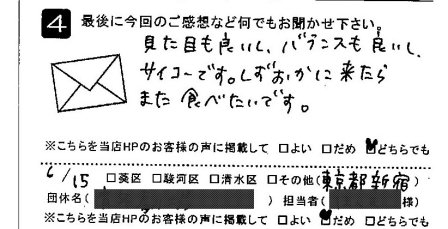 4 最後に今回のご感想など何でもお聞かせ下さい。
見た目も良いし、バランスも良いし、
サイコーです。しずおかに来たら
また食べたいです。
※こちらを当店HPのお客様の声に掲載して □よい □だめ ■どちらでも
6/15 □葵区 □駿河区 □清水区 □その他(東京都新宿)
団体名( ) 担当者( 様)
※こちらを当店HPのお客様の声に掲載して □よい ■だめ □どちらでも